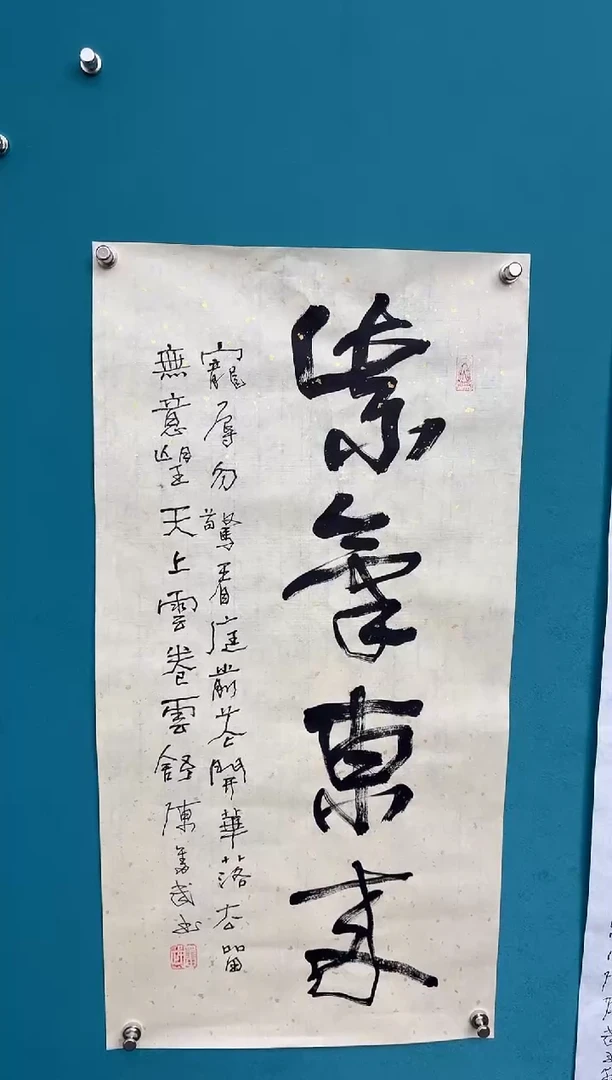 紫氣東來
寵辱勿驚看庭前花開華落去留
無意望天上雲卷雲舒陳